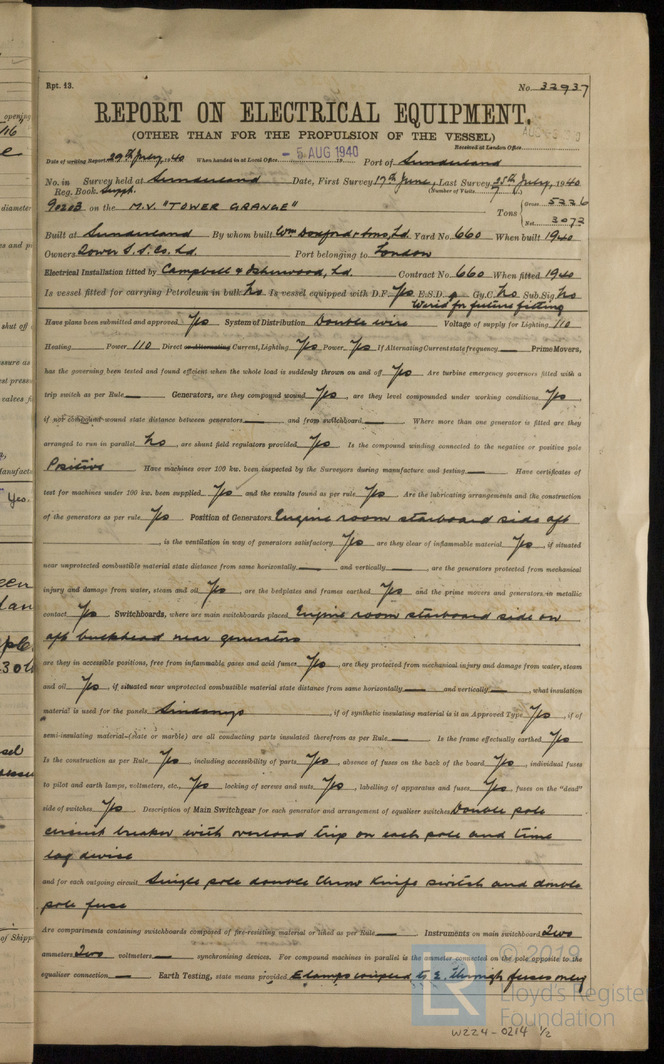 Rpt. 13.
No. 32937
REPORT ON ELECTRICAL EQUIPMENT.
(OTHER THAN FOR THE PROPULSION OF THE VESSEL)
Received at London Office
Date of writing Report 29th July 1940 When handed in at Local Office - 5 AUG 1940 Port of Sunderland
No. in Survey held at Sunderland Date, First Survey 17th June, Last Survey 25th July, 1940
Reg. Book. Suppt. (Number of Visits 7)
90203 on the M.V. "TOWER GRANGE" Tons Gross 5226
Net 3072
Built at Sunderland By whom built Wm Doxford & Sons, Ld. Yard No. 660 When built 1940
Owners Tower S.S. Co. Ld. Port belonging to London
Electrical Installation fitted by Campbell & Isherwood, Ld. Contract No. 660 When fitted 1940
Is vessel fitted for carrying Petroleum in bulk No Is vessel equipped with D.F. Yes E.S.D. Gy.C. No Sub.Sig. No
Wired for future fitting
Have plans been submitted and approved Yes System of Distribution Double wire Voltage of supply for Lighting 110
Heating Power 110 Direct or Alternating Current, Lighting Yes Power Yes If Alternating Current state frequency — Prime Movers,
has the governing been tested and found efficient when the whole load is suddenly thrown on and off Yes Are turbine emergency governors fitted with a
trip switch as per Rule — Generators, are they compound wound Yes, are they level compounded under working conditions Yes,
if not compound wound state distance between generators — and from switchboard — Where more than one generator is fitted are they
arranged to run in parallel No, are shunt field regulators provided Yes Is the compound winding connected to the negative or positive pole
Positive Have machines over 100 kw. been inspected by the Surveyors during manufacture and testing — Have certificates of
test for machines under 100 kw. been supplied Yes and the results found as per rule Yes Are the lubricating arrangements and the construction
of the generators as per rule Yes Position of Generators Engine room starboard side aft
, is the ventilation in way of generators satisfactory Yes are they clear of inflammable material Yes, if situated
near unprotected combustible material state distance from same horizontally — and vertically — , are the generators protected from mechanical
injury and damage from water, steam and oil Yes, are the bedplates and frames earthed Yes and the prime movers and generators in metallic
contact Yes Switchboards, where are main switchboards placed Engine room starboard side on
aft bulkhead near generators
are they in accessible positions, free from inflammable gases and acid fumes Yes, are they protected from mechanical injury and damage from water, steam
and oil Yes, if situated near unprotected combustible material state distance from same horizontally — and vertically — , what insulation
material is used for the panels Sindanyo, if of synthetic insulating material is it an Approved Type Yes, if of
semi-insulating material—(slate or marble) are all conducting parts insulated therefrom as per Rule — Is the frame effectually earthed Yes
Is the construction as per Rule Yes, including accessibility of parts Yes, absence of fuses on the back of the board Yes, individual fuses
to pilot and earth lamps, voltmeters, etc. Yes locking of screws and nuts Yes, labelling of apparatus and fuses Yes, fuses on the "dead"
side of switches Yes Description of Main Switchgear for each generator and arrangement of equaliser switches Double pole
circuit breaker with overload trip on each pole and time
lag devise
and for each outgoing circuit Single pole double throw knife switch and double
pole fuse
Are compartments containing switchboards composed of fire-resisting material or lined as per Rule — Instruments on main switchboard Two
ammeters Two voltmeters — synchronising devices. For compound machines in parallel is the ammeter connected on the pole opposite to the
equaliser connection — Earth Testing, state means provided E lamps coupled to E. through fuses
W224-0214 1/2
© 2019
Lloyd's Register
Foundation
LR